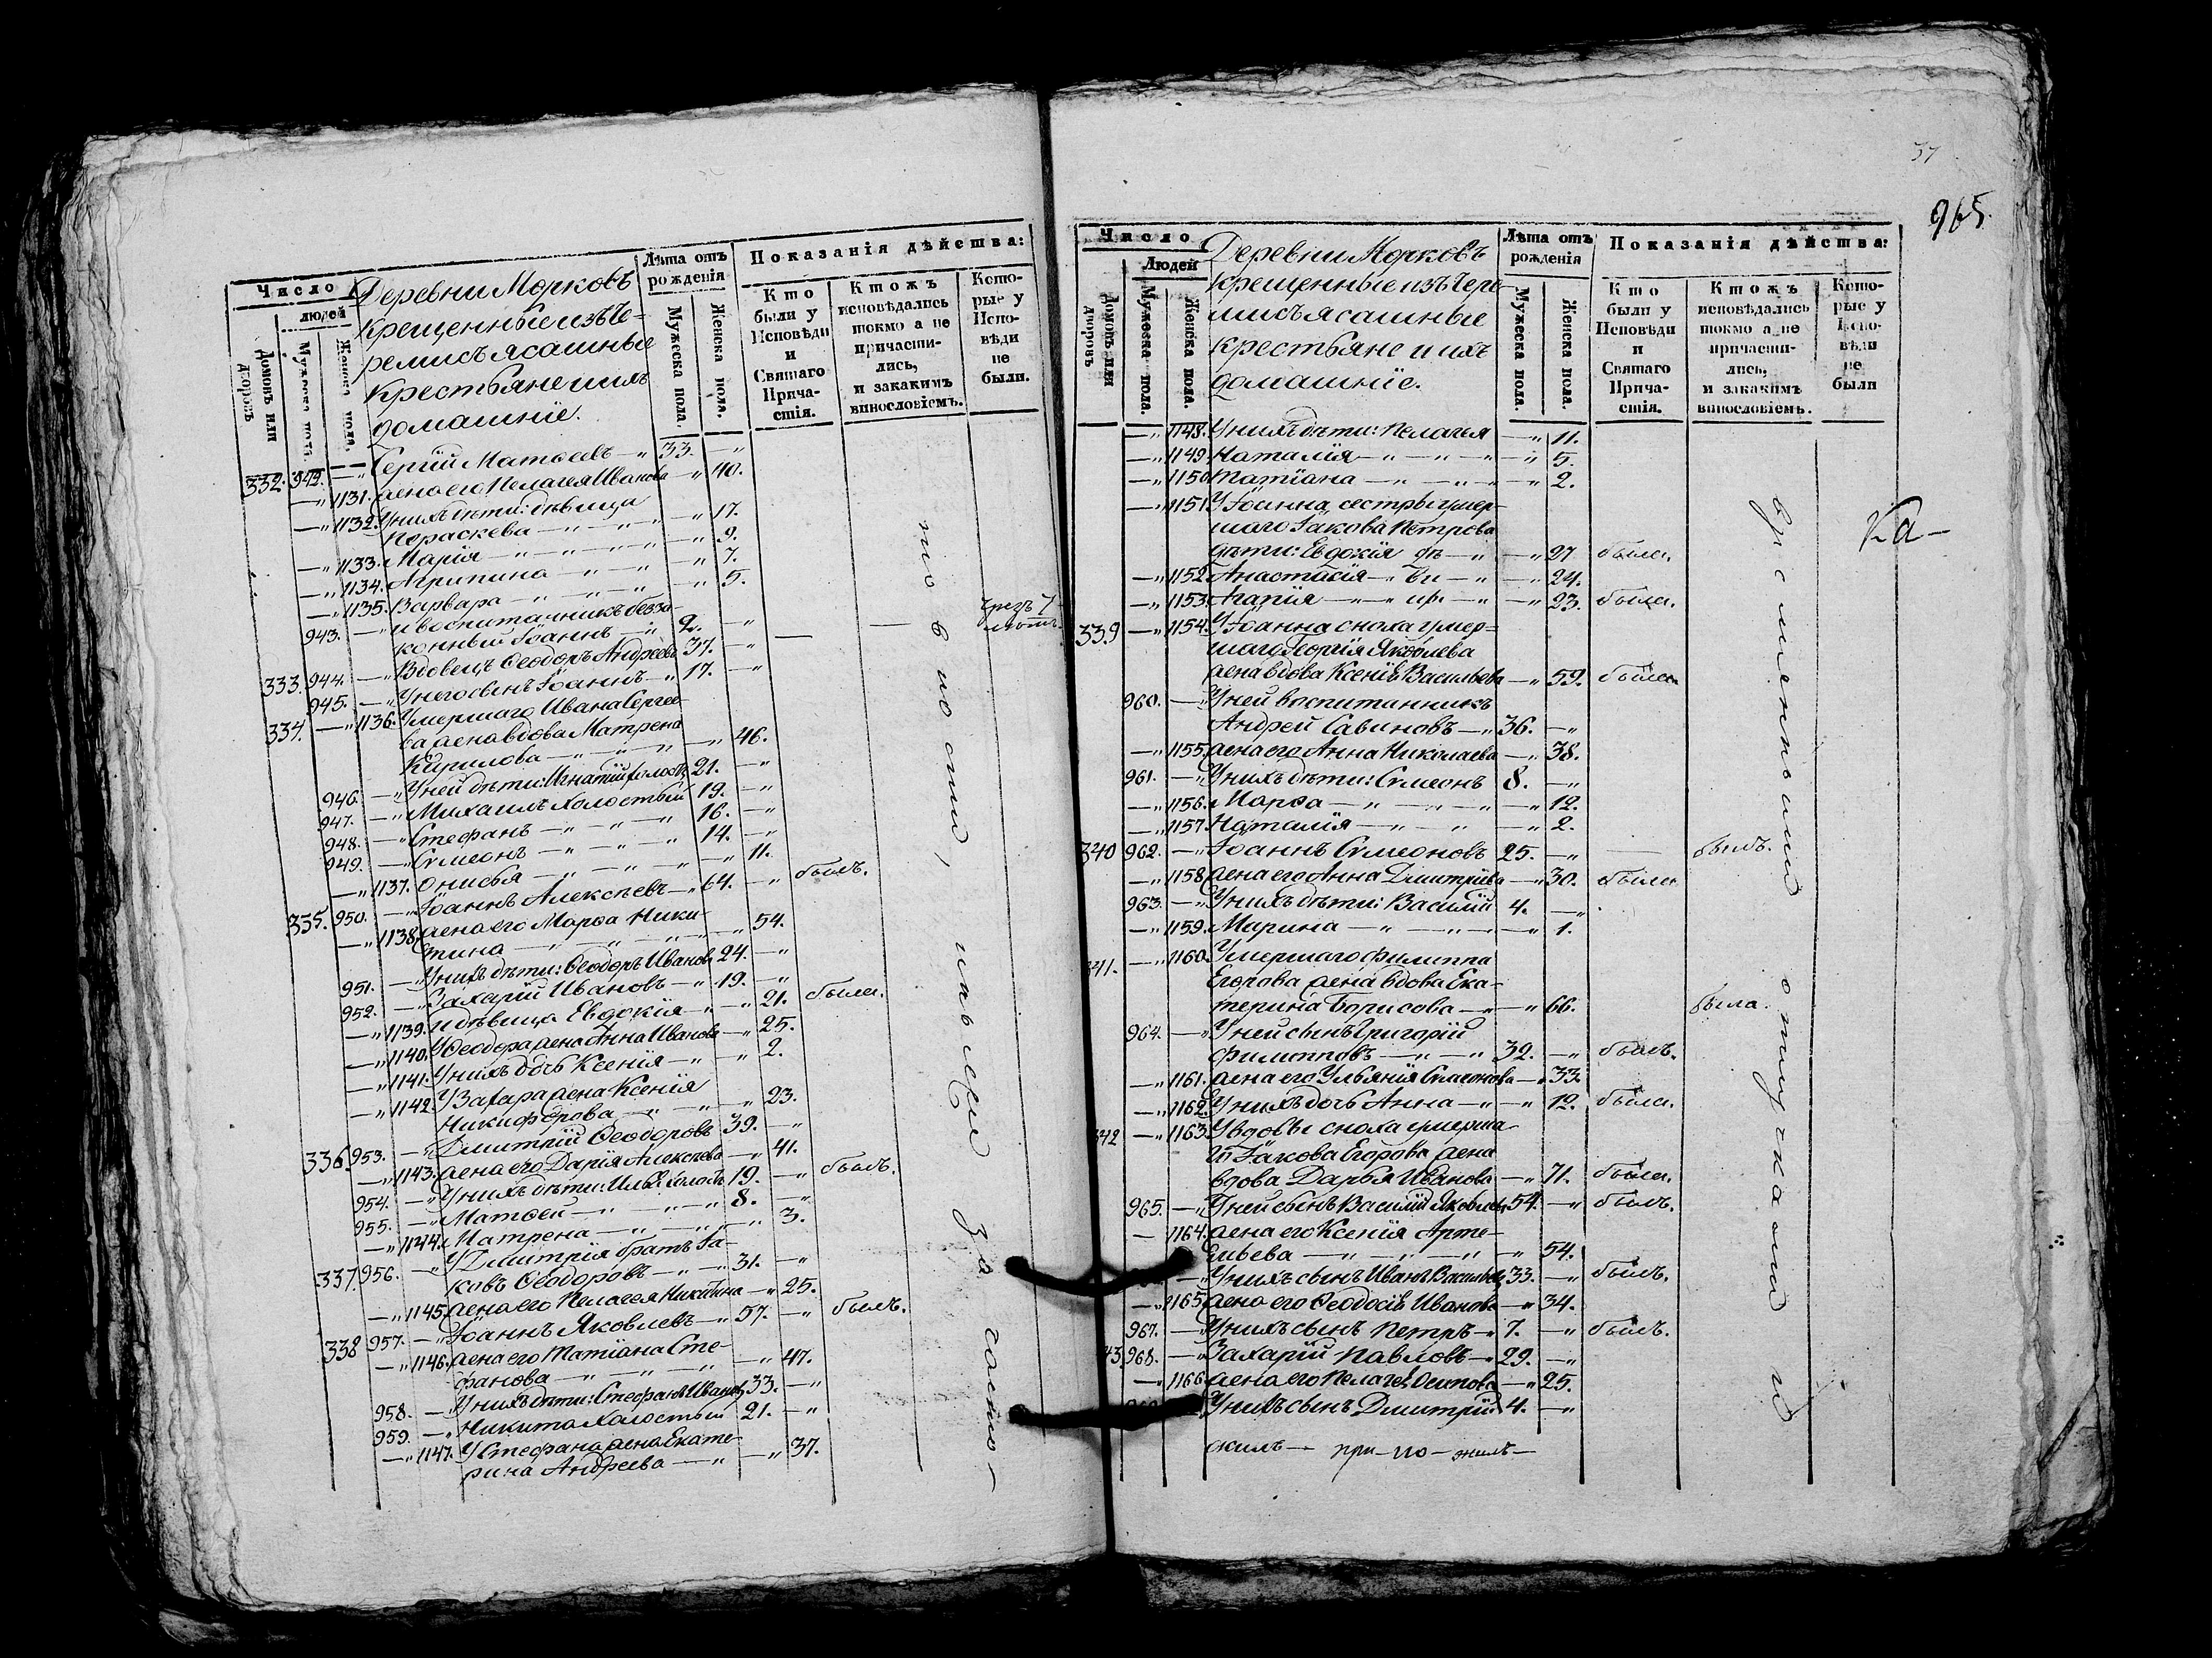 Число
людей
Домовъ или дворовъ
Мужеска пола.
Женска пола.
Деревни Морковъ
крещенные изъ Че-
ремисъ ясашные
крестьяне и ихъ
домашніе.
Лѣта отъ рожденія
Мужеска пола.
Женска пола.
Показанія дѣйства:
Кто были у Исповѣди и Святаго Прича-стія.
Ктожъ исповѣдались токмо а не причасти-лись, и закакимъ винословіемъ.
Кото-рые у Испо-вѣди не были.
332. 942. —" Сергій Матѳеевъ —" 33. —"
—" 1131. жена его Пелагея Иванова —" 40.
—" 1132. У нихъ дѣти: дѣвица
Пораскева —" —" —" 17.
—" 1133. Марія —" —" —" 9.
—" 1134. Агрипина —" —" —" 7.
—" 1135. Варвара —" —" —" 5.
943. —" и воспитанникъ безза-
конный Іоаннъ —" 2. —"
333. 944. —" Вдовецъ Ѳеодоръ Андреевъ 37. —"
945. —" У него сынъ Іоаннъ —" 17. —"
334. —" 1136. Умершаго Ивана Сергее-
ва жена вдова Матрена
Кирилова —" —" —" 46.
946. —" У ней дѣти: Игнатій холостъ 21. —"
947. —" Михаилъ холостый 19. —"
948. —" Стефанъ —" —" 16. —"
949. —" Сѵмеонъ —" —" 14. —"
—" 1137. Онисья —" —" —" 11.
335. 950. —" Іоаннъ Алексѣевъ —" 64. —" былъ.
—" 1138. жена его Марѳа Ники-
тина —" —" —" 54.
951. —" У нихъ дѣти: Ѳеодоръ Иванов 24. —"
952. —" Захарій Ивановъ —" 19. —"
—" 1139. и дѣвица Евдокія —" —" 21. была.
—" 1140. У Ѳеодора жена Анна Иванова —" 25.
—" 1141. У нихъ дочь Ксенія —" —" 2.
—" 1142. У Захара жена Ксенія
Никифорова —" —" —" 23.
336. 953. —" Дмитрій Ѳеодоровъ 39. —"
—" 1143. жена его Дарія Алексѣева —" 41.
954. —" У нихъ дѣти: Илья холостъ 19. —" былъ.
955. —" Матѳей —" —" 8. —"
—" 1144. Матрена —" —" —" 3.
337. 956. —" У Дмитрія братъ Іа-
ковъ Ѳеодоровъ —" —" 31. —"
—" 1145. жена его Пелагея Никитина —" 25.
338 957. —" Іоаннъ Яковлевъ —" 57. —" былъ.
—" 1146. жена его Татіана Сте-
фанова —" —" —" 47.
958. —" У нихъ дѣти: Стефанъ Иванов 33. —"
959. —" Никита холостый 21. —"
—" 1147. У Стефана жена Екате-
рина Андреева —" —" 37.
чрезъ 7 лѣтъ.
965.
Число
Людей
Домовъ или дворовъ
Мужеска пола.
Женска пола.
Деревни Морковъ
крещенные изъ Чере-
мисъ ясашные
крестьяне и ихъ
домашніе.
Лѣта отъ рожденія
Мужеска пола.
Женска пола.
Показанія дѣйства:
Кто были у Исповѣди и Святаго Прича-стія.
Ктожъ исповѣдались токмо а не причасти-лись, и закакимъ винословіемъ.
Кото-рые у Испо-вѣди не были
—" 1148. У нихъ дѣти: Пелагея —" 11.
—" 1149. Наталія —" —" —" 5.
—" 1150. Татіана —" —" —" 2.
—" 1151. У Іоанна сестры умер-
шаго Іакова Петрова
дѣти: Евдокія —" —" 27 была.
—" 1152. Анастасія —" —" 24.
—" 1153. Агапія —" —" 23. была.
339 —" 1154. У Іоанна сноха умер-
шаго Георгія Яковлева
жена вдова Ксенія Васильева —" 59. была
960. —" У ней воспитанникъ
Андрей Савиновъ —" 36. —"
—" 1155. жена его Анна Николаева —" 38.
961. —" У нихъ дѣти: Сѵмеонъ 8. —"
—" 1156. Марѳа —" —" —" 12.
—" 1157. Наталія —" —" —" 2.
340 962. —" Іоаннъ Сѵмеоновъ 25. —" — былъ.
—" 1158. жена его Анна Дмитріева —" 30. была
963. —" У нихъ дѣти: Василій 4. —"
—" 1159. Марина —" —" —" 1.
341. —" 1160. Умершаго Филиппа
Егорова жена вдова Ека-
терина Борисова —" —" 66. была.
964. —" У ней сынъ Григорій
Филипповъ —" —" 32. —" былъ.
—" 1161. жена его Ульянія Сѵмеонова —" 33.
—" 1162. У нихъ дочь Анна —" —" 12. была.
342 —" 1163. У вдовы сноха умерша-
го Іакова Егорова жена
вдова Дарья Иванова —" 71. была.
965. —" У ней сынъ Василій Яковлев 54. —" былъ.
— 1164. жена его Ксенія Арте-
мьева —" —" —" 54.
—" У нихъ сынъ Иванъ Васильев 33. —" былъ.
—" 1165. жена его Ѳеодосія Иванова —" 34.
967. —" У нихъ сынъ Петръ —" 7. —" былъ.
43. 968. —" Захарій Павловъ —" 29. —"
—" 1166. жена его Пелагея Осипова —" 25.
У нихъ сынъ Дмитрій 4. —"
скимъ — при — ло — жилъ —
Ка-